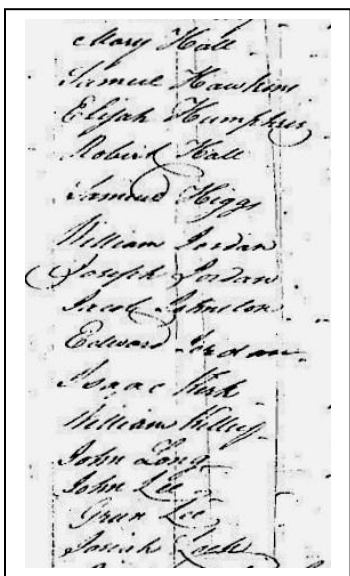 Mary Hall
Samuel Hawkins
Elijah Humphris
Robert Hall
Samuel Higgs
William Jordan
Joseph Jordan
Jacob Johnston
Edward Jordan
Isaac Kirk
William Kelley
John Long
John Lee
Green Lee
Josiah